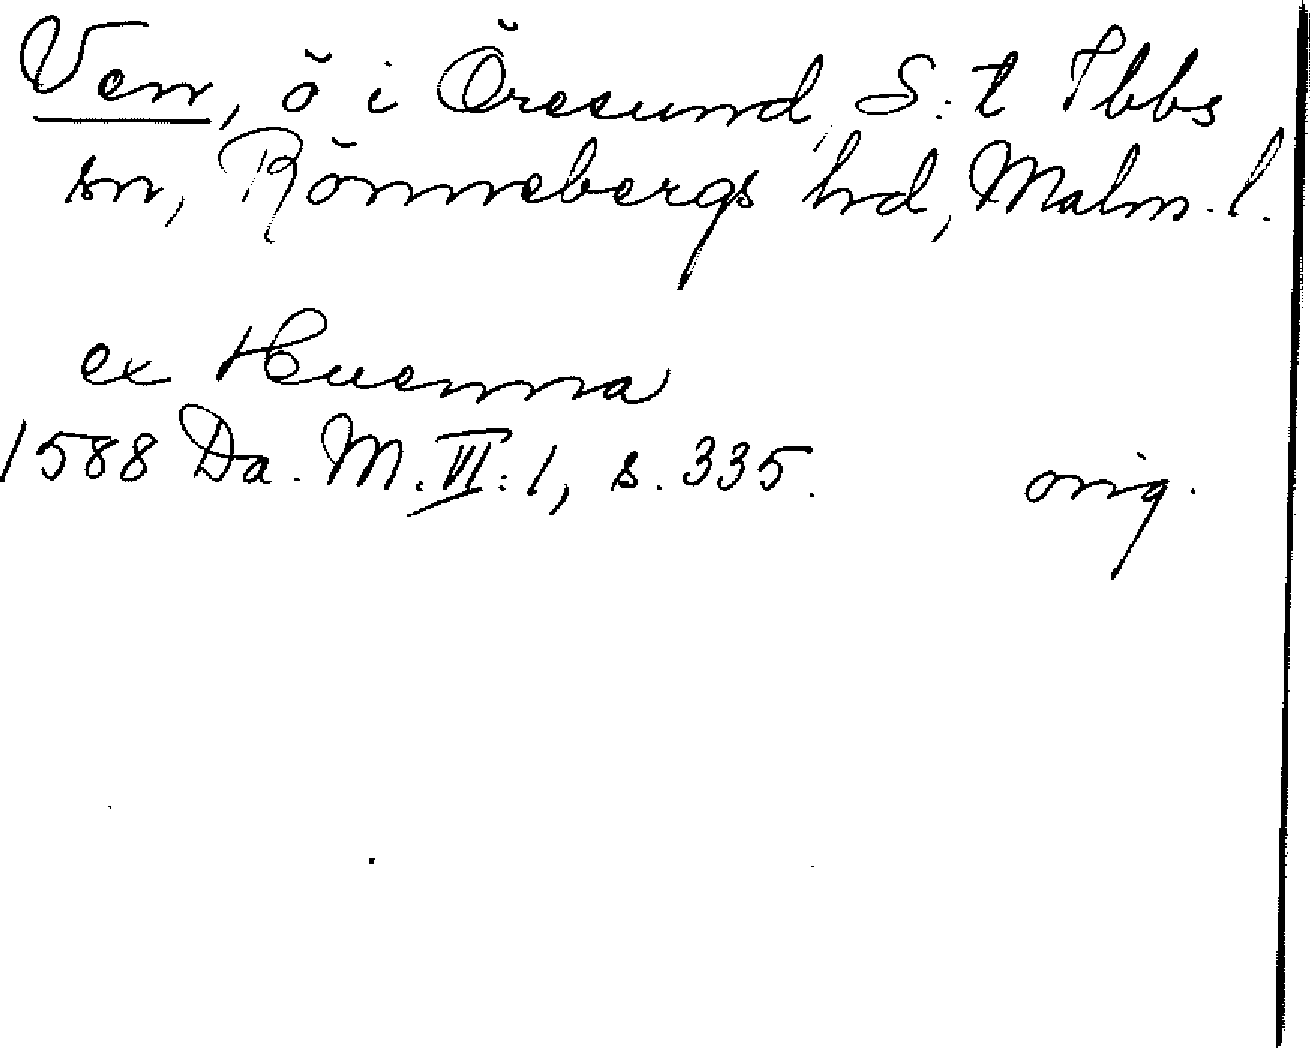 Ven, ö i Öresund, S:t Ibbs
sn, Rönnebergs hd, Malm. l.
ex Huenna
1588 Da. M. VI: 1, s. 335. orig.